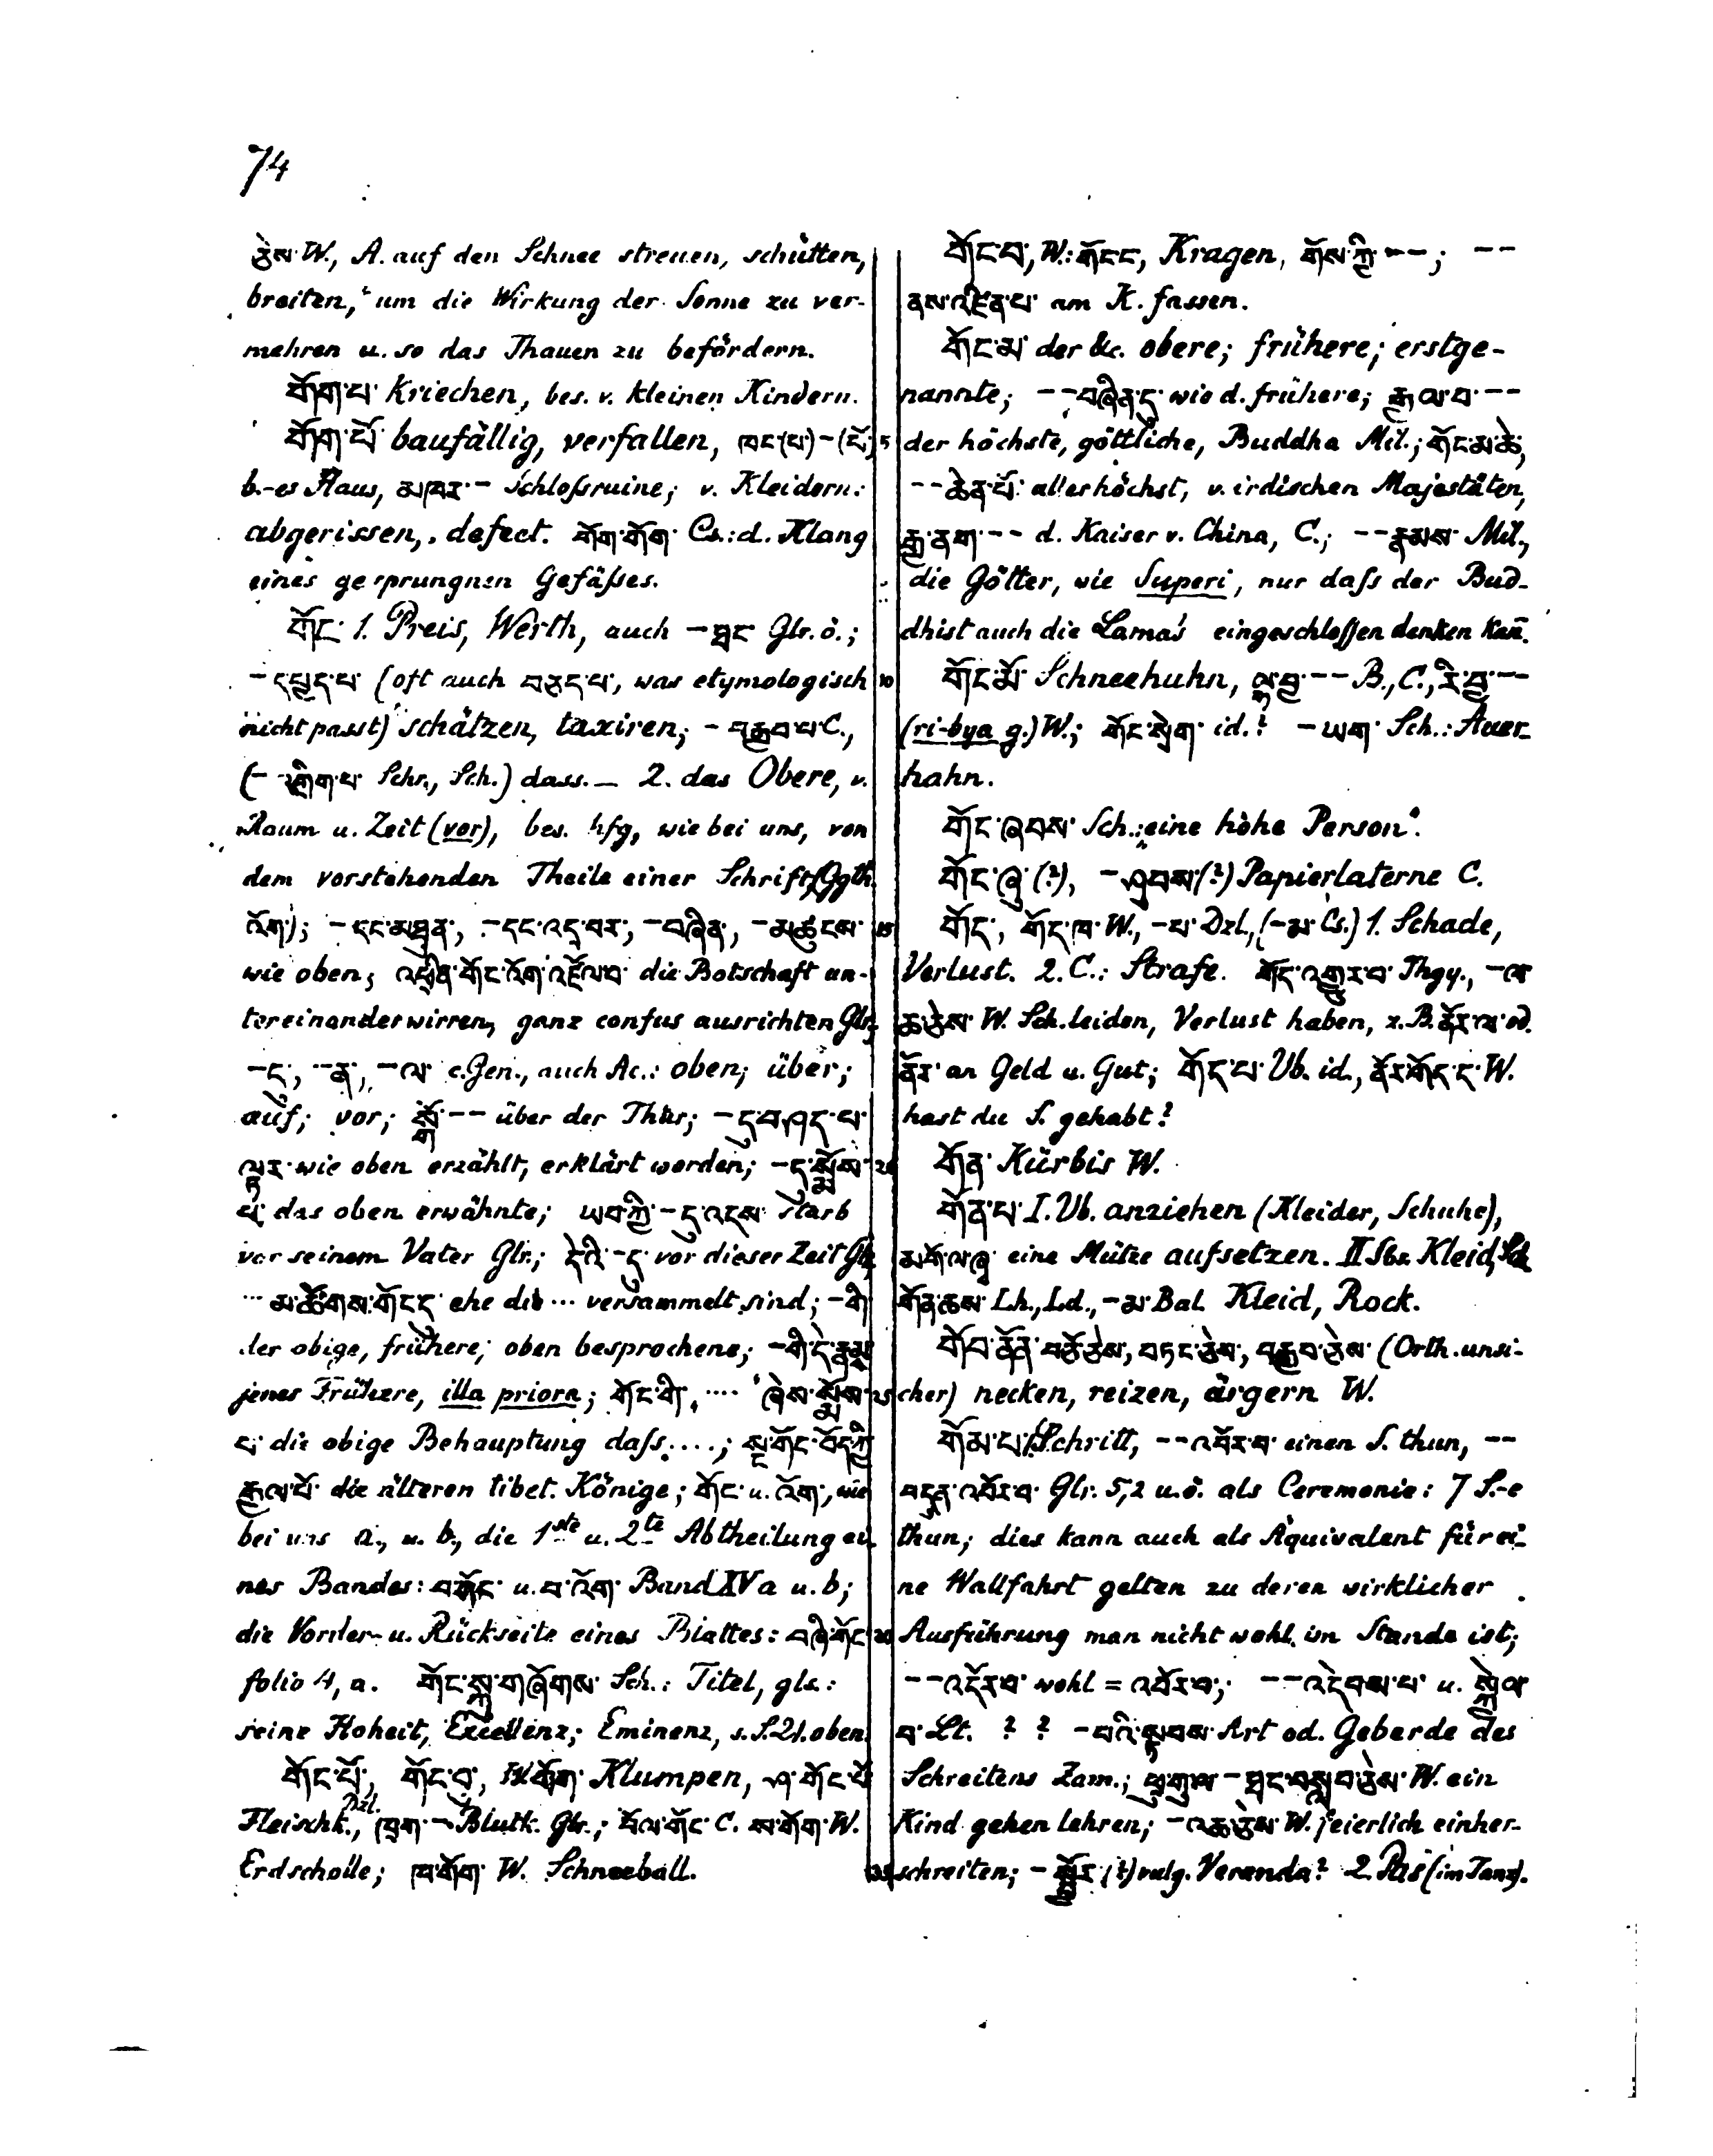 74
ཅེས་ W., A. auf den Schnee streuen, schütten,
breiten, um die Wirkung der Sonne zu ver-
mehren u. so das Thauen zu befördern.
གོག་པ་ kriechen, bes. v. kleinen Kindern.
གོག་པོ་ baufällig, verfallen, ཁང་(པ་)-(པོ་) 5
b.-es Haus, མཁར་- Schloſsruine; v. Kleidern:
abgerissen, defect. གོག་གོག་ Cs.: d. Klang
eines gesprungnen Gefäſses.
གོང་ 1. Preis, Werth, auch -ཐང་ Glr. ö.;
-དཔྱད་པ་ (oft auch བཅད་པ་, was etymologisch 10
nicht passt) schätzen, taxiren; -བརྒྱབ་པ་ C.,
(- Schr., Sch.) dass. — 2. das Obere, v.
Raum u. Zeit (vor), bes. hfg, wie bei uns, von
dem vorstehenden Theile einer Schrift (Ggth.
འོག་); -དང་མཐུན་, -དང་འདྲ་བར་, -བཞིན་, -མཚུངས་ 15
wie oben; འཕྲིན་གོང་འོག་འཛོལ་བ་ die Botschaft un-
tereinanderwirren, ganz confus ausrichten Glr.;
-དུ་, -ན་, -ལ་ c. Gen., auch Ac.: oben; über;
auf; vor; སྒོ་-- über der Thür; -དུ་བཤད་པ་
ལྟར་ wie oben erzählt, erklärt worden; -དུ་སྨོས་ 20
པ་ das oben erwähnte; ཡབ་ཀྱི་-དུ་འདས་ starb
vor seinem Vater Glr.; དེའི་-དུ་ vor dieser Zeit Glr.
... མ་ཚོགས་གོང་ད་ ehe die ... versammelt sind; -གི་
der obige, frühere; oben besprochene; -གི་དེ་རྣམས་
jenes Frühere, illa priora; གོང་གི་, .... ཞེས་སྨོས་ 25
པ་ die obige Behauptung daſs....; སྔ་གོང་བོད་ཀྱི་
རྒྱལ་པོ་ die älteren tibet. Könige; གོང་ u. འོག་, wie
bei uns a., u. b., die 1ste u. 2te Abtheilung ei-
nes Bandes: པ་གོང་ u. པ་འོག་ Band XIV a u. b;
die Vorder- u. Rückseite eines Blattes: བཞི་གོང་ 30
folio 4, a. གོང་སྐུ་གཞོགས་ Sch.: Titel, gls.:
seine Hoheit, Excellenz; Eminenz, s. S.21. oben.
གོང་པོ་, གོང་བུ་, W. གོག་ Klumpen, ཤ་གོང་པོ་
Fleischk., Dzl. ཁྲག་- Blutk. Glr.; བོལ་གོང་ C. ས་གོག་ W.
Erdscholle; ཁ་གོག་ W. Schneeball. 35
གོང་བ་, W.: གོངང་, Kragen, གོས་ཀྱི་--; --
ནས་འཛིན་པ་ am K. fassen.
གོང་མ་ der &c. obere; frühere; erstge-
nannte; --བཞིན་དུ་ wie d. frühere; རྒྱལ་བ་--
der höchste, göttliche, Buddha Mil.; གོང་མ་ཆེ,
--ཆེན་པོ་ allerhöchst, v. irdischen Majestäten,
རྒྱ་ནག་-- d. Kaiser v. China, C.; --རྣམས་ Mil.,
die Götter, wie Superi, nur daſs der Bud-
dhist auch die Lama's eingeschloſsen denken kan̄.
གོང་མོ་ Schneehuhn, ལྷ་བྱ་-- B., C., རི་བྱ་--
(ri-bya g.) W.; གོང་སྲེག་ id.? -ཡག་ Sch.: Auer-
hahn.
གོང་ཞབས་ Sch.: „eine hohe Person“.
གོང་ཞུ་ (?), -ཤུབས་ (?) Papierlaterne C.
གོད་, གོད་ཁ་ W., -པ་ Dzl., (-མ་ Cs.) 1. Schade,
Verlust. 2. C.: Strafe. གོད་འགྱུར་བ་ Thgy., -ལ་
ཆ་ཅེས་ W. Sch. leiden, Verlust haben, z.B. ནོར་ལ་ od.
ནོར་ an Geld u. Gut; གོད་པ་ Vb. id., ནོར་གོད་ད་ W.
hast du S. gehabt?
གོན་ Kürbis W.
གོན་པ་ I. Vb. anziehen (Kleider, Schuhe),
མགོ་ལ་ཞྭ་ eine Mütze aufsetzen. II Sbst. Kleid, Sch.
གོན་ཆས་ Lh., Ld., -མ་ Bal. Kleid, Rock.
གོབ་ནོན་བཅོ་ཅེས་, བཏང་ཅེས་, བརྒྱབ་ཅེས་ (Orth. unsi-
cher) necken, reizen, ärgern W.
གོམ་པ་ 1. Schritt, --འབོར་བ་ einen S. thun, --
བདུན་འབོར་བ་ Glr. 5,2 u. ö. als Ceremonie: 7 S.-e
thun; dies kann auch als Äquivalent für ei-
ne Wallfahrt gelten zu deren wirklicher
Ausführung man nicht wohl im Stande ist;
--འདོར་བ་ wohl = འབོར་བ་; --འདེབས་པ་ u. སྐྱེལ་
བ་ Lt. ? ? -བའི་སྟབས་ Art od. Geberde des
Schreitens Zam.; ཕྲུ་གུ་ལ་-ཐང་བསླབ་ཅེས་ W. ein
Kind gehen lehren; -འཆ་ཅེས་ W. feierlich einher-
schreiten; - (?) vulg. Veranda? 2. Pas (im Tanz).